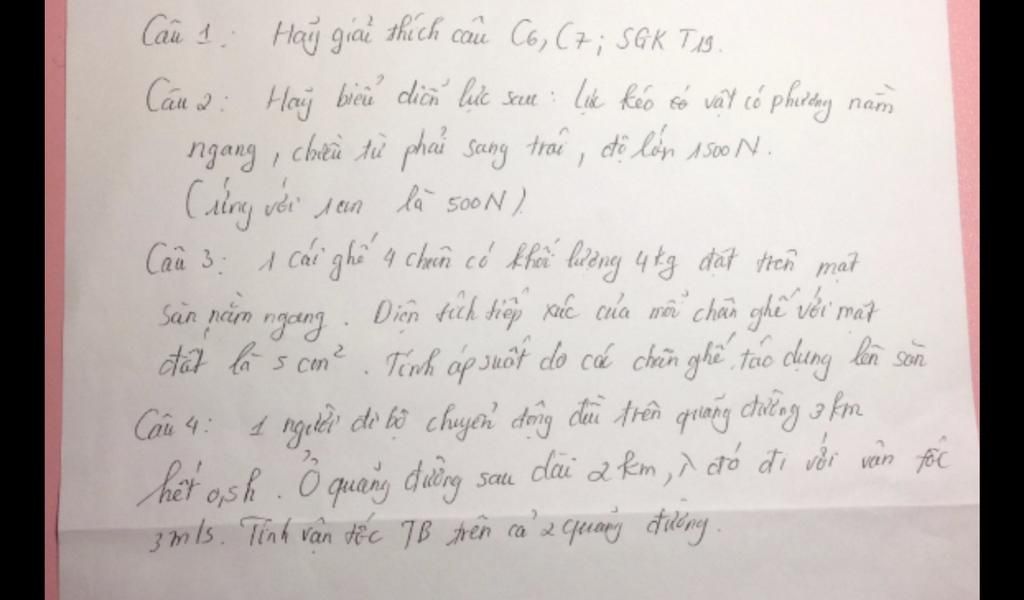 Câu 1: Hãy giải thích câu C6, C7; SGK T19.
Câu 2: Hãy biểu diễn lực sau: lực kéo có vật có phương nằm
ngang, chiều từ phải sang trái, độ lớn 1500N.
(ứng với 1cm là 500N)
Câu 3: 1 cái ghế 4 chân có khối lượng 4kg đặt trên mặt
sàn nằm ngang. Diện tích tiếp xúc của mỗi chân ghế với mặt
đất là 5 cm². Tính áp suất do các chân ghế tác dụng lên sàn
Câu 4: 1 người đi bộ chuyển động đều trên quãng đường 3km
hết 0,5h. Ở quãng đường sau dài 2km, đó đi với vân tốc
3m/s. Tính vận tốc TB trên cả 2 quãng đường.